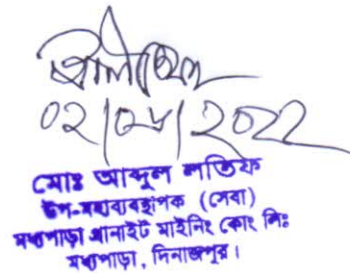 ০২/০৮/২০২২
মোঃ আব্দুল লতিফ
উপ-মহাব্যবস্থাপক (সেবা)
মধ্যপাড়া গ্রানাইট মাইনিং কোং লিঃ
মধ্যপাড়া, দিনাজপুর।